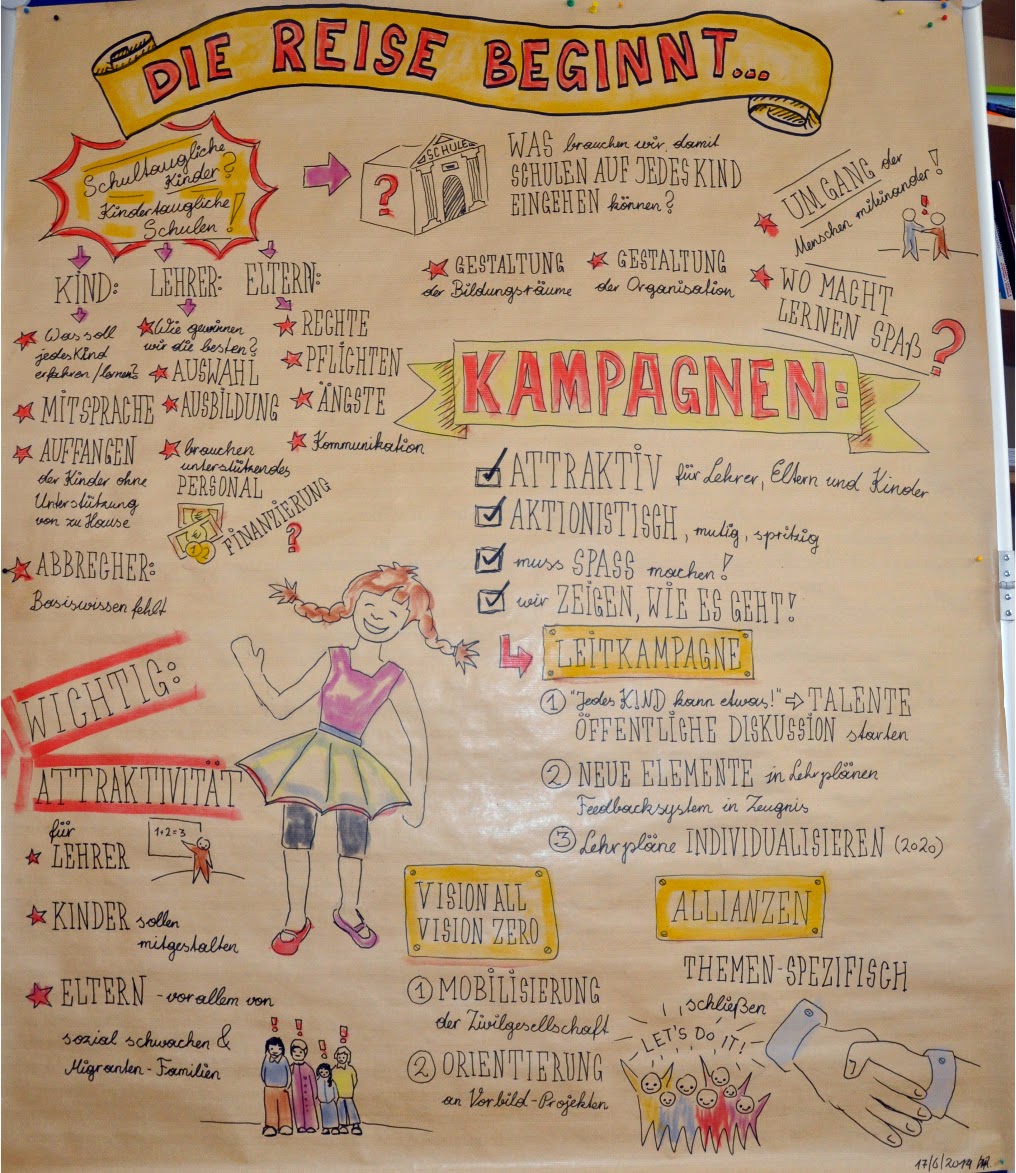 DIE REISE BEGINNT...
Schultaugliche
Kinder?
Kindertaugliche
Schulen!
SCHULE
?
WAS brauchen wir, damit
SCHULEN AUF JEDES KIND
EINGEHEN können?
GESTALTUNG
der Bildungsräume
GESTALTUNG
der Organisation
UMGANG der
Menschen miteinander!
!
WO MACHT
LERNEN SPAß
?
KIND:
Was soll
jedes Kind
erfahren/lernen?
MITSPRACHE
AUFFANGEN
der Kinder ohne
Unterstützung
von zu Hause
ABBRECHER:
Basiswissen fehlt
LEHRER:
Wie gewinnen
wir die besten?
AUSWAHL
AUSBILDUNG
brauchen
unterstützendes
PERSONAL
€
€
1 2
FINANZIERUNG
?
ELTERN:
RECHTE
PFLICHTEN
ÄNGSTE
Kommunikation
KAMPAGNEN:
ATTRAKTIV für Lehrer, Eltern und Kinder
AKTIONISTISCH, mutig, spritzig
muss SPASS machen!
wir ZEIGEN, WIE ES GEHT!
LEITKAMPAGNE
1 "Jedes KIND kann etwas!" ⇨ TALENTE
ÖFFENTLICHE DISKUSSION starten
2 NEUE ELEMENTE in Lehrplänen
Feedbacksystem in Zeugnis
3 Lehrpläne INDIVIDUALISIEREN (2020)
WICHTIG:
ATTRAKTIVITÄT
für
LEHRER
1+2=3
KINDER sollen
mitgestalten
ELTERN - vor allem von
sozial schwachen &
Migranten-Familien
! ! ! !
VISION ALL
VISION ZERO
1 MOBILISIERUNG
der Zivilgesellschaft
2 ORIENTIERUNG
an Vorbild-Projekten
ALLIANZEN
THEMEN-SPEZIFISCH
schließen
LET'S DO IT!
17/6/2019